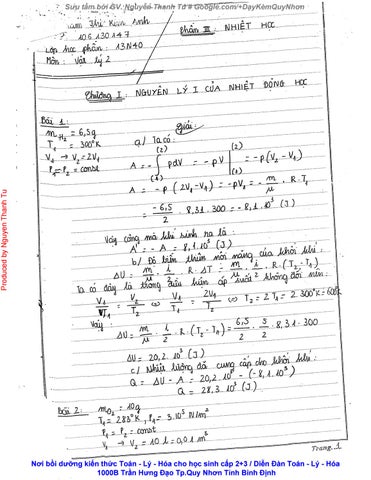 Sưu tầm bởi GV. Nguyễn Thanh Tú # Google.com/+DạyKèmQuyNhơn
106130147
Lớp học phần : 13N40
Môn : Vật lý 2
Phần III : NHIỆT HỌC
Chương I : NGUYÊN LÝ I CỦA NHIỆT ĐỘNG HỌC
Bài 1 :
m_H₂ = 6,5g
T₁ = 300°K
V₁ → V₂ = 2V₁
P₁ = P₂ = const
Giải :
a/ Ta có :
A = - ∫₍₁₎⁽²⁾ pdV = - pV |₍₁₎⁽²⁾ = - p(V₂ - V₁)
A = - p(2V₁ - V₁) = - pV₁ = - m/μ . R.T₁
= -6,5/2 . 8,31.300 = - 8,1.10³ (J)
Vậy công mà khí sinh ra là :
A' = - A = 8,1.10³ (J)
b/ Độ biến thiên nội năng của khối khí :
ΔU = m/μ . i/2 . R . ΔT = m/μ . i/2 . R . (T₂ - T₁)
Ta có đây là trong điều kiện áp suất không đổi nên :
V₁/T₁ = V₂/T₂ ⇔ V₁/T₁ = 2V₁/T₂ ⇔ T₂ = 2T₁ = 2.300°K = 600°K
Vậy
ΔU = m/μ . i/2 . R . (T₂ - T₁) = 6,5/2 . 5/2 . 8,31.300
ΔU = 20,2.10³ (J)
c/ Nhiệt lượng đã cung cấp cho khối khí :
Q = ΔU - A = 20,2.10³ - (-8,1.10³)
Q = 28,3.10³ (J)
Bài 2 :
m_O₂ = 10g
T₁ = 283°K, P₁ = 3.10⁵ N/m²
P₁ = P₂ = const
V₁ → V₂ = 10 l = 0,01 m³
Trang 1
Produced by Nguyen Thanh Tu
Nơi bồi dưỡng kiến thức Toán - Lý - Hóa cho học sinh cấp 2+3 / Diễn Đàn Toán - Lý - Hóa
1000B Trần Hưng Đạo Tp.Quy Nhơn Tỉnh Bình Định